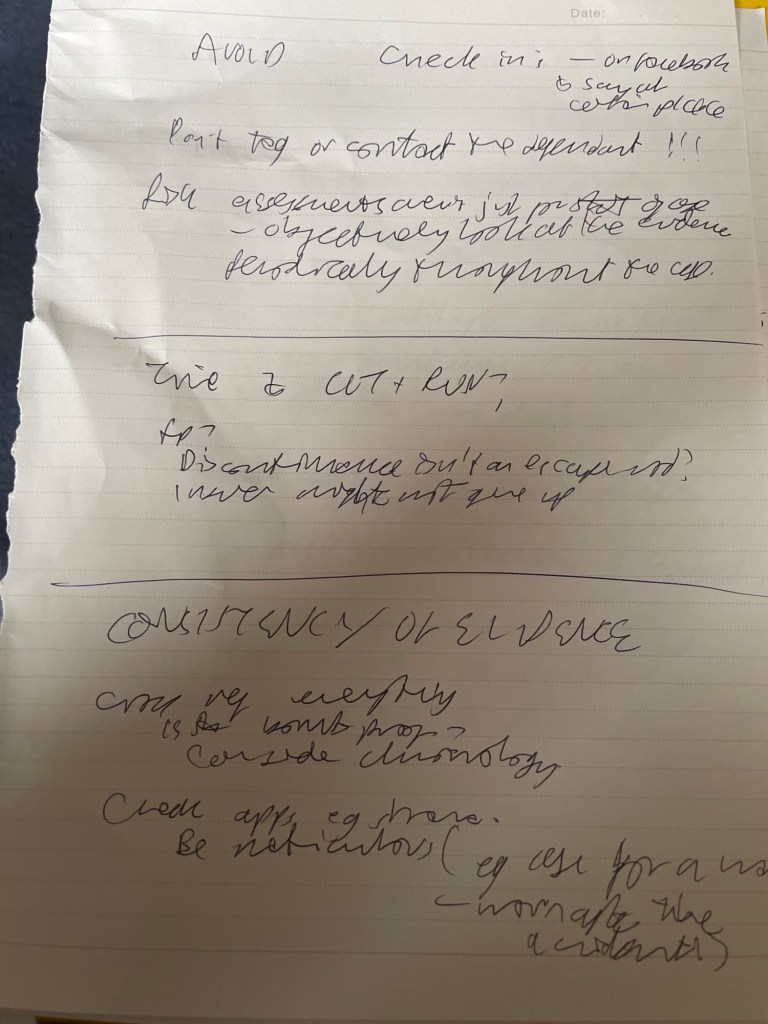 Date:
AVOID Check in: – on facebook
to say at
certain place
Don't tag or contact the dependant !!!
Risk assessments aren't just pretext of case
– objectively look at the evidence
Periodically throughout the case.
Time to CUT + RUN?
Discontinuance isn't an escape
might not give up
CONSISTENCY OF EVIDENCE
Cross ref everything
is it bomb proof?
Consider chronology
Check apps, eg strava.
Be meticulous (eg case for a
the
accidents)